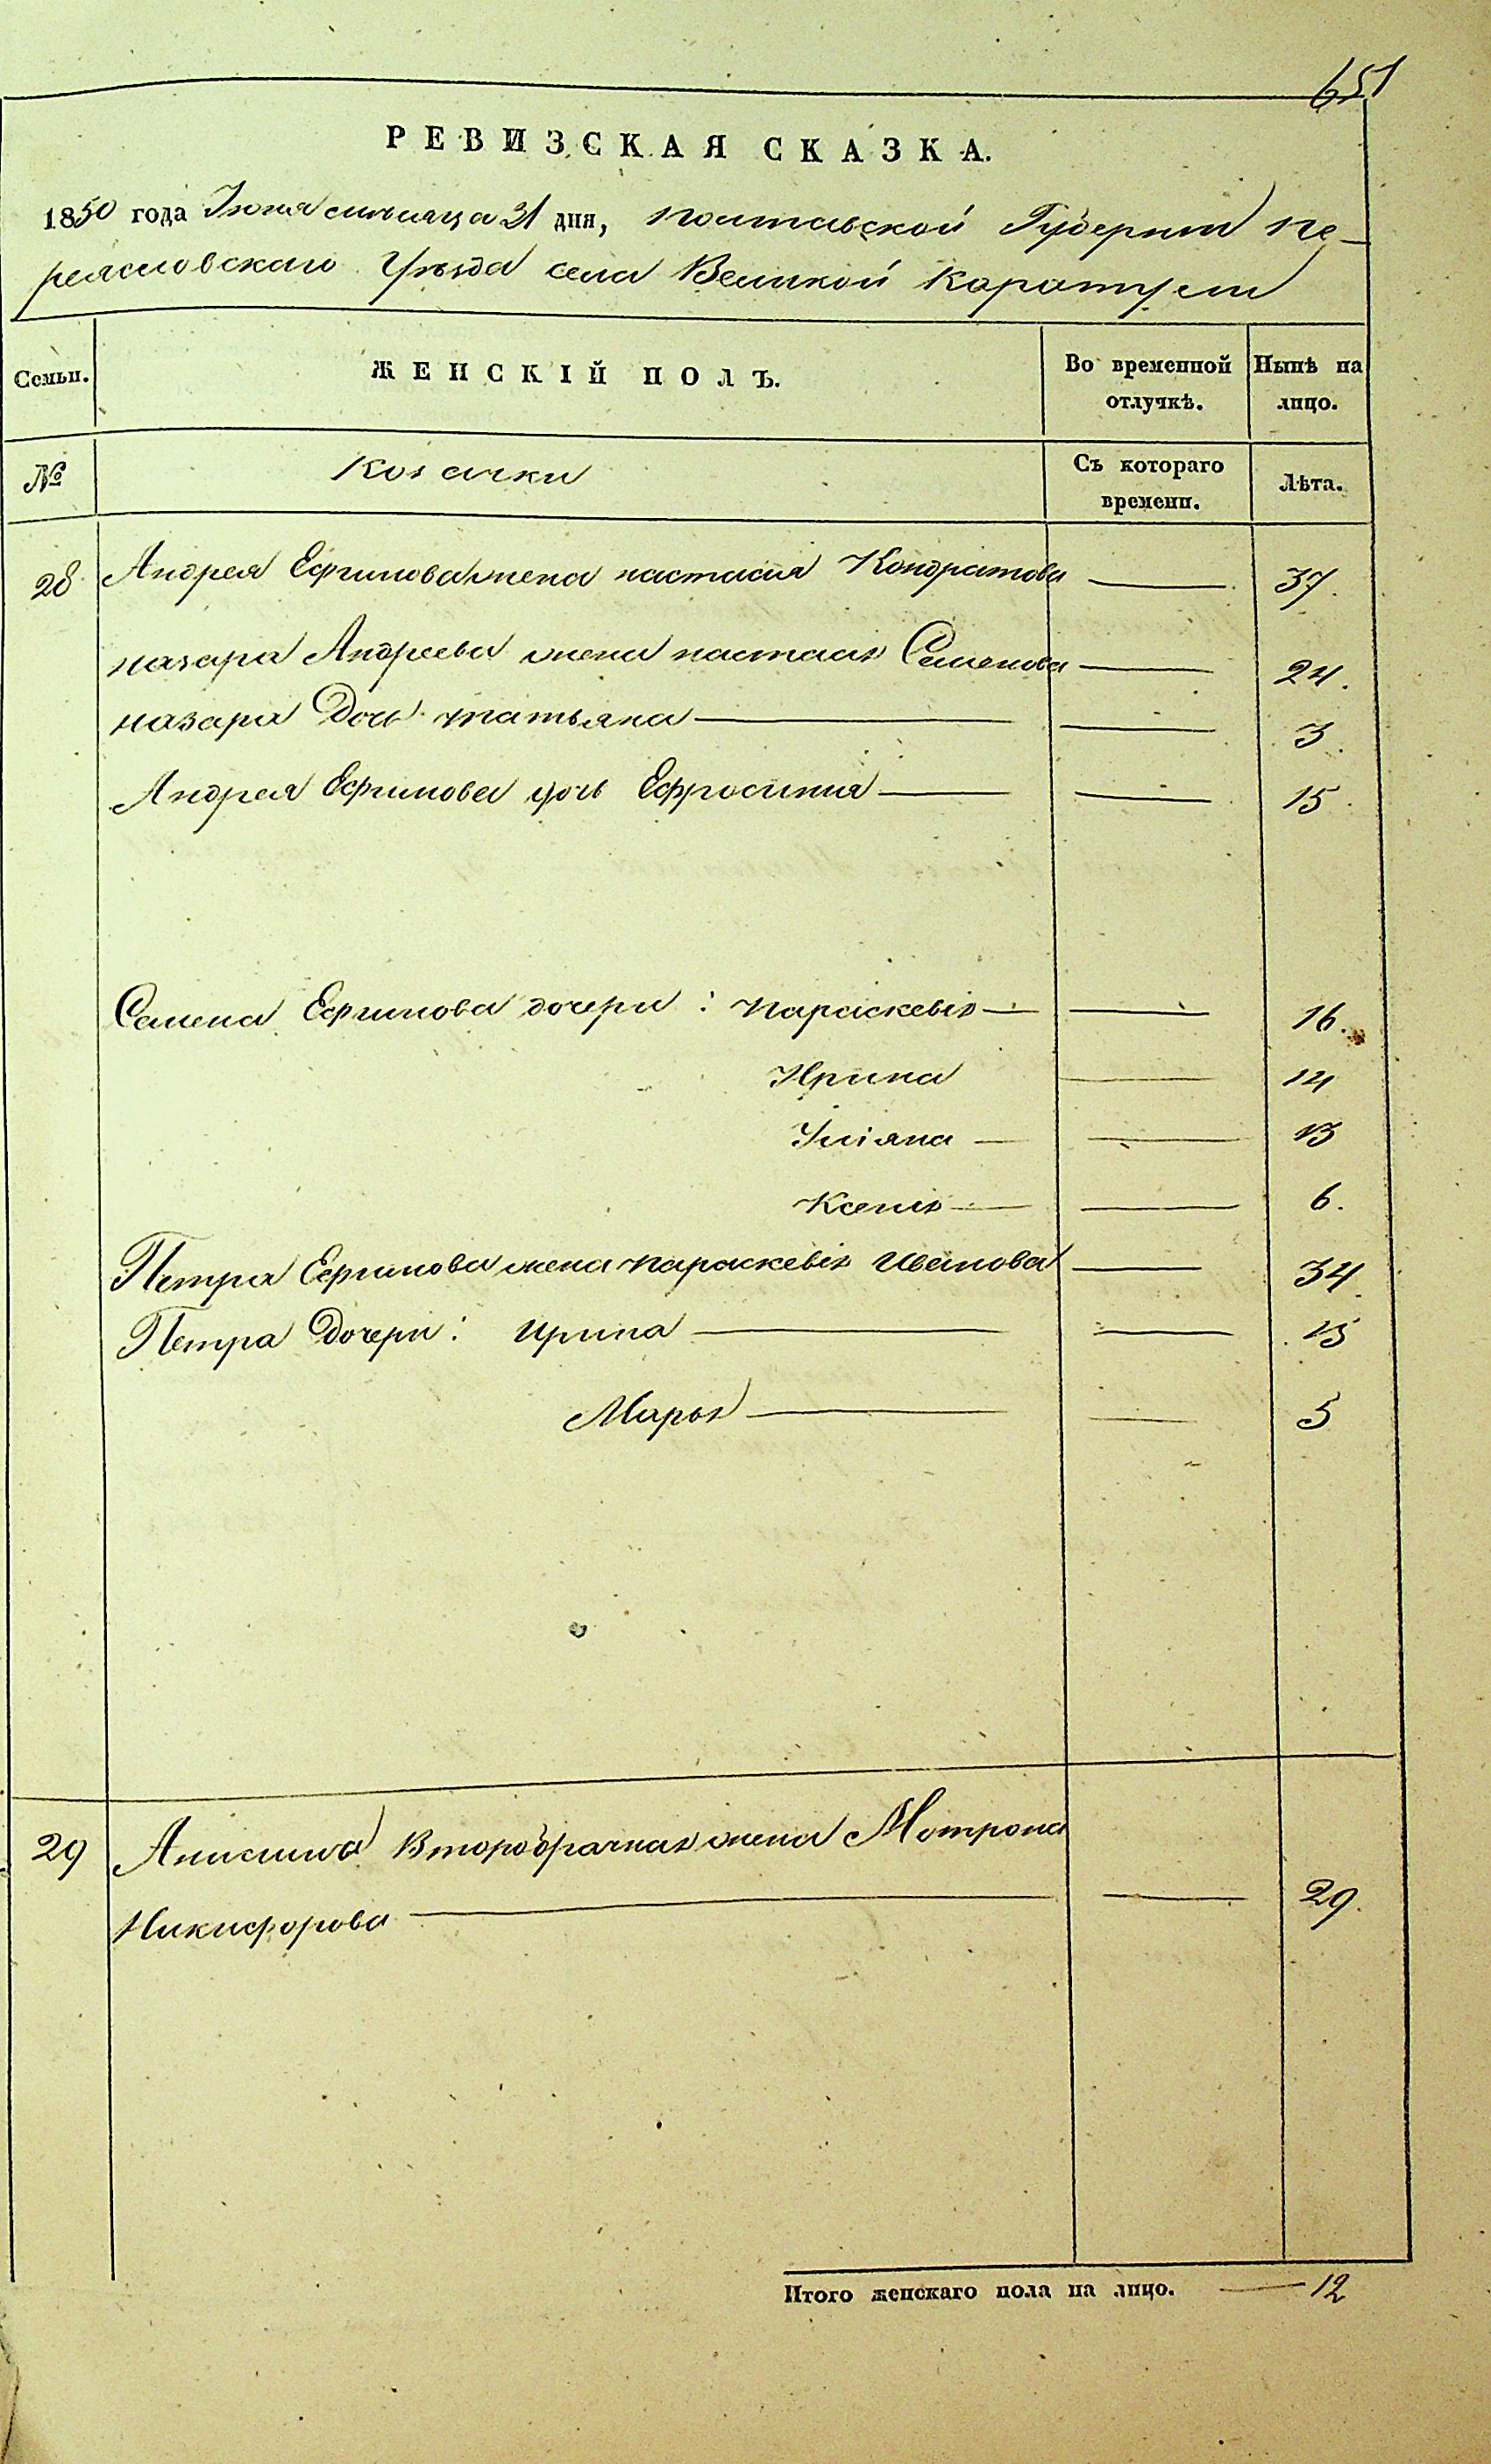 651
РЕВИЗСКАЯ СКАЗКА.
1850 года Іюня мѣсяца 21 дня, Полтавской Губерніи Пе-
реяславскаго Уѣзда села Великой Каратули
Семьи. ЖЕНСКІЙ ПОЛЪ. Во временной отлучкѣ. Нынѣ на лицо.
№ Козачки Съ котораго времени. Лѣта.
28 Андрея Ефимова жена настасія Кондратова — 37.
назара Андреева жена настасія Семенова — 24.
назара Дочь татьяна — 3.
Андрея Ефимова дочь Ефросинія — 15.
Семена Ефимова дочери: Параскевія — 16.
Ирина — 14
Уліяна — 13
Ксенія — 6.
Петра Ефимова жена Параскевія Иванова — 34.
Петра Дочери: Ирина — 15
Марья — 5
29 Анисима Второбрачная жена Мотрона
Никифорова — 29.
Итого женскаго пола на лицо. — 12